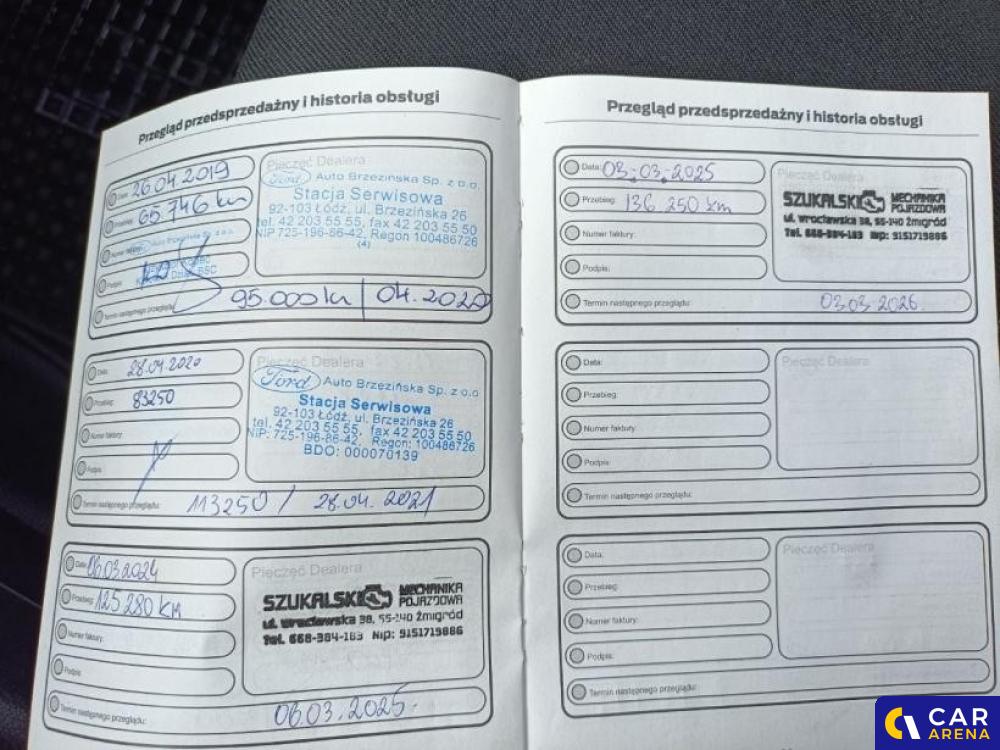 Przegląd przedsprzedażny i historia obsługi
Data: 26.04.2019
Przebieg: 65 746 km
Numer faktury:
Podpis:
Termin następnego przeglądu: 95.000 km | 04.2020
Pieczęć Dealera
Ford Auto Brzezińska Sp. z o.o.
Stacja Serwisowa
92-103 Łódź, ul. Brzezińska 26
tel. 42 203 55 55, fax 42 203 55 50
NIP 725-196-86-42, Regon 100486726
(4)
Data: 28.04.2020
Przebieg: 83250
Numer faktury:
Podpis:
Termin następnego przeglądu: 113250 / 28.04.2021
Pieczęć Dealera
Ford Auto Brzezińska Sp. z o.o.
Stacja Serwisowa
92-103 Łódź, ul. Brzezińska 26
tel. 42 203 55 55, fax 42 203 55 50
NIP: 725-196-86-42, Regon: 100486726
BDO: 000070139
Data: 06.03.2024
Przebieg: 125 280 km
Numer faktury:
Podpis:
Termin następnego przeglądu: 06.03.2025.
Pieczęć Dealera
SZUKALSKI MECHANIKA
POJAZDOWA
ul. Wrocławska 38, 55-140 Żmigród
Tel. 668-384-183 Nip: 9151719886
Przegląd przedsprzedażny i historia obsługi
Data: 03.03.2025
Przebieg: 136 250 km
Numer faktury:
Podpis:
Termin następnego przeglądu: 03.03.2026.
Pieczęć Dealera
SZUKALSKI MECHANIKA
POJAZDOWA
ul. Wrocławska 38, 55-140 Żmigród
Tel. 668-384-183 Nip: 9151719886
Data:
Przebieg:
Numer faktury:
Podpis:
Termin następnego przeglądu:
Pieczęć Dealera
Data:
Przebieg:
Numer faktury:
Podpis:
Termin następnego przeglądu:
Pieczęć Dealera
CAR
ARENA